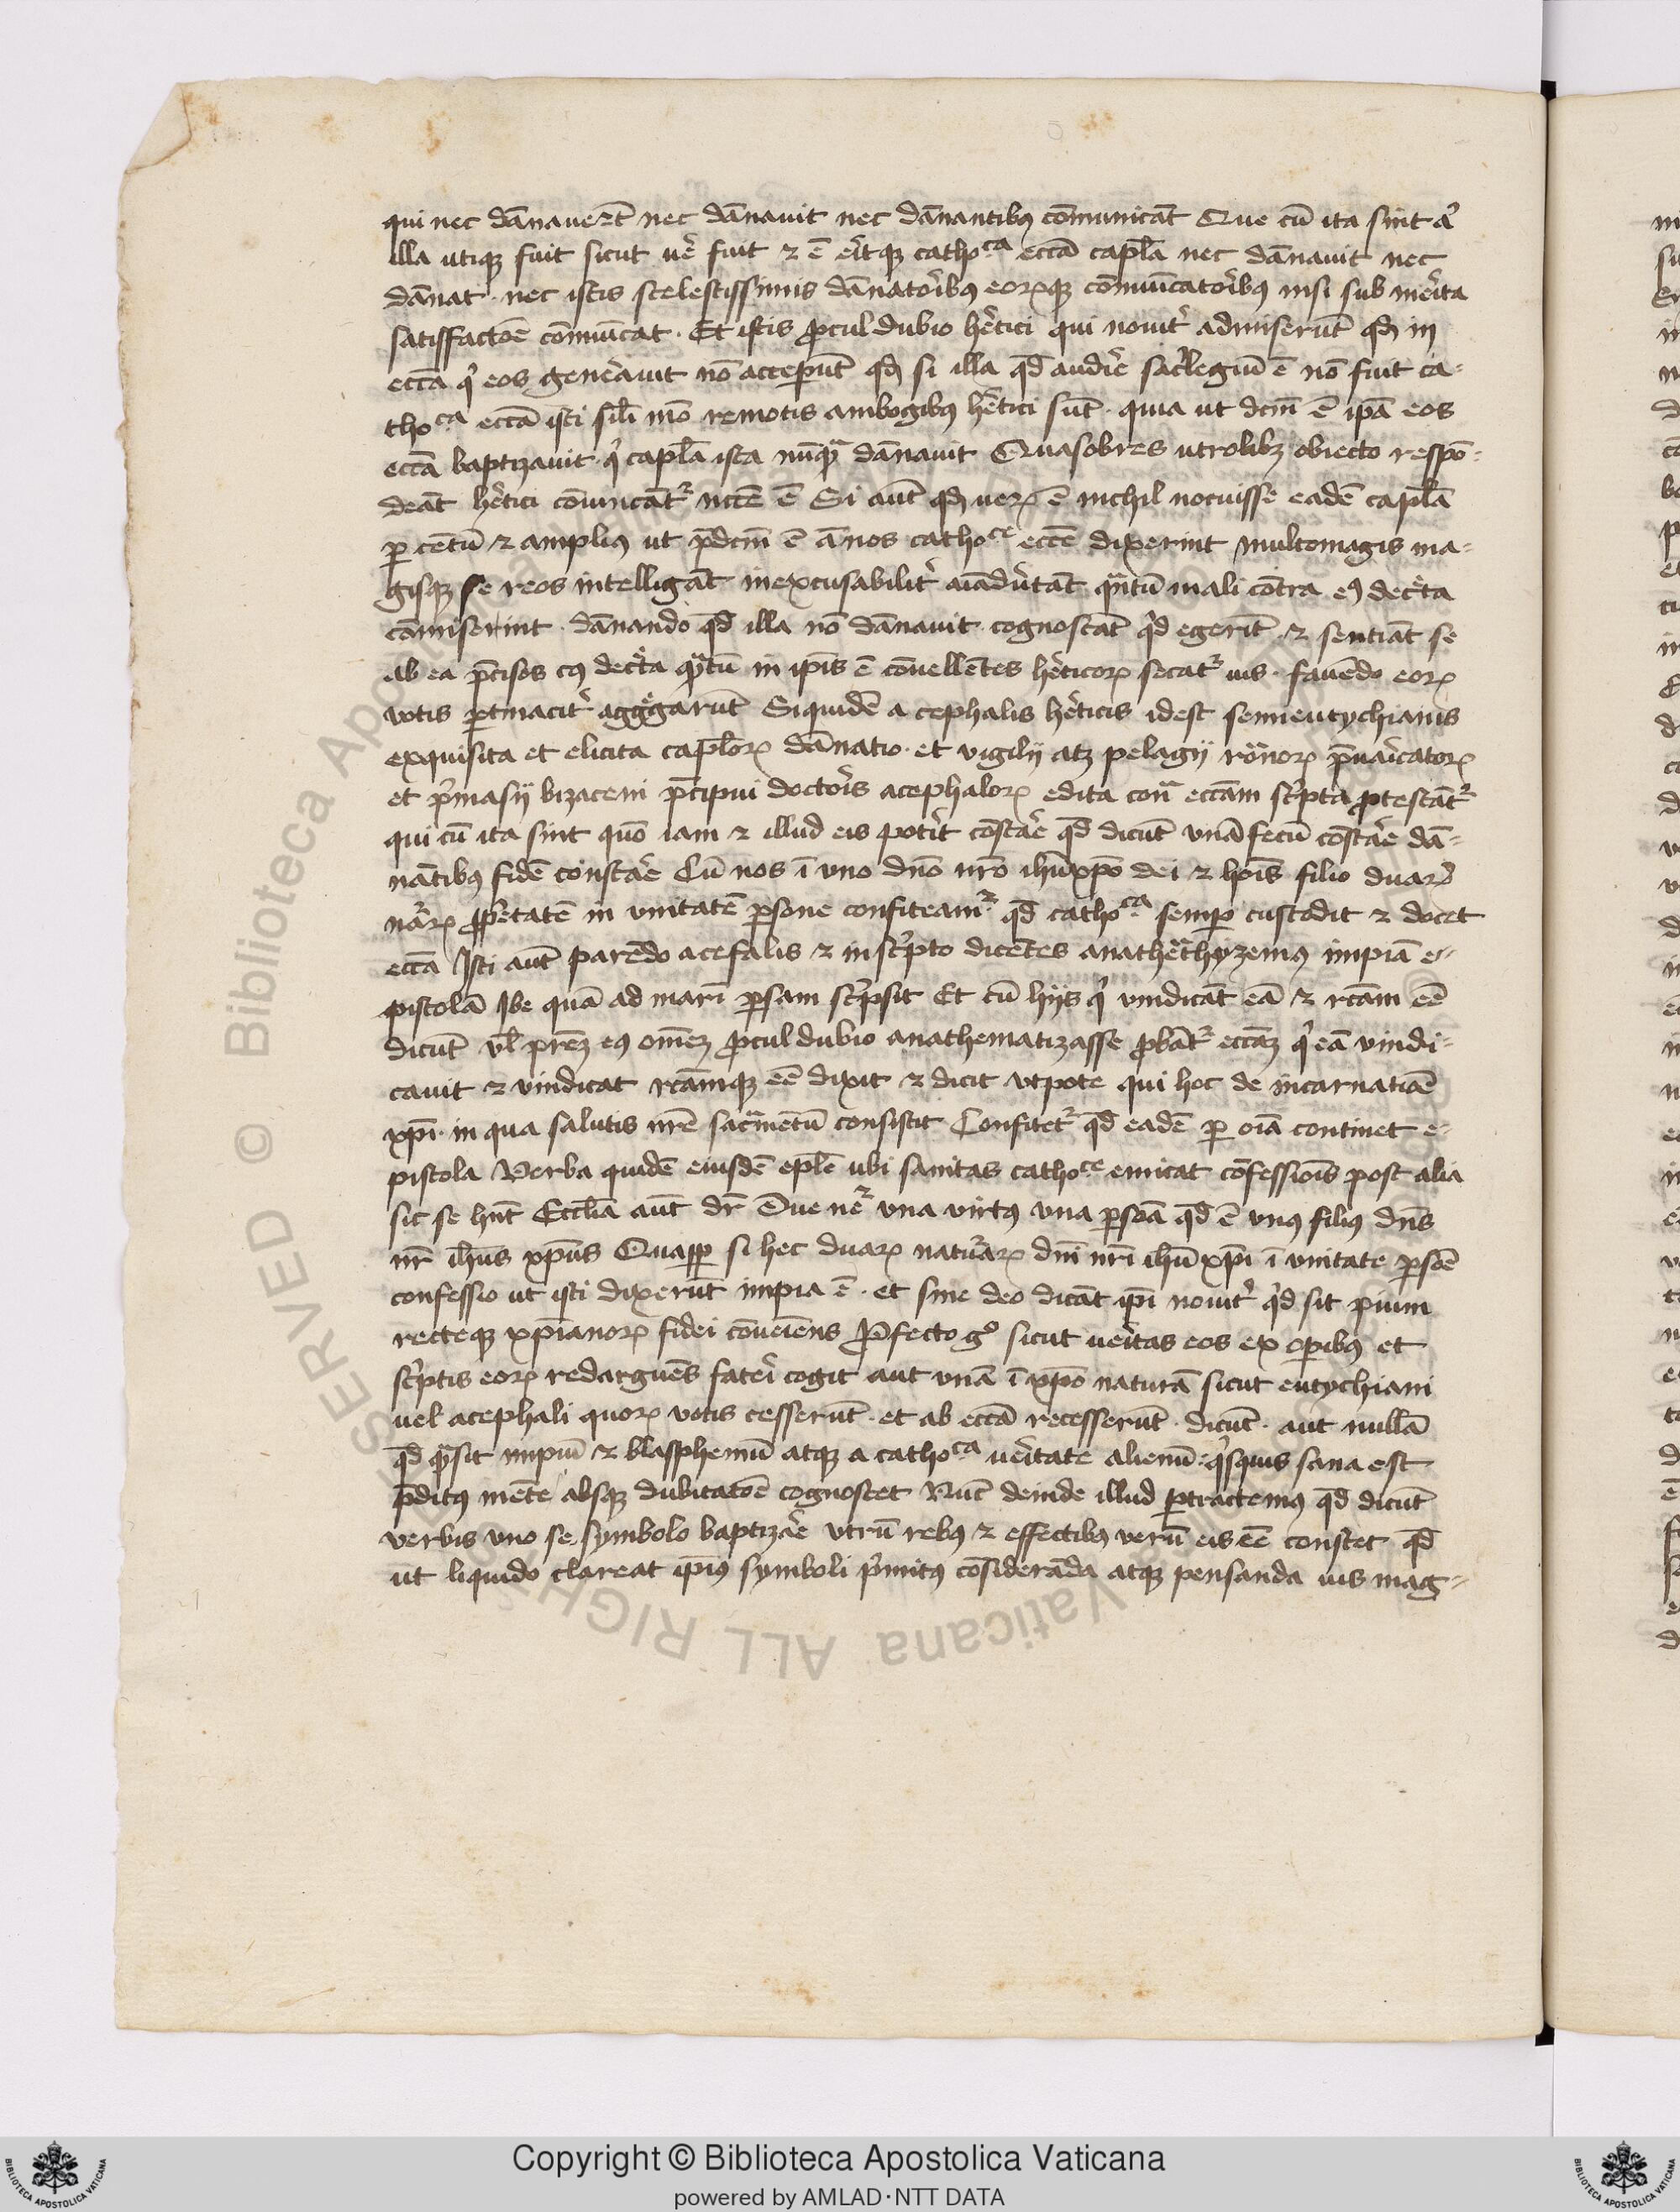 qui nec dānauer̄t nec dānauit nec dānantibꝯ cōmunicāt Que cū ita sint
illa utiqꝫ fuit sicut ue᷑ fuit ⁊ ē e᷑itqꝫ cathoᶜᵃ eccā capl̄a nec dānauit nec
dānat · nec istis scelestissimis dānato᷑ibꝯ eorꝝqꝫ cōmūcato᷑ibꝯ nisi sub me᷑ita
satisfactōē cōmūcat · Et istis ꝓcul dubio he᷑tici qui nouit᷑ admiserūt qꝫ in
eccā q̇ eos gene᷑auit nō acceꝑūt qꝫ si illa qd̄ audi᷑e sac᷑legiū ē nō fuit ca-
thoᶜᵃ eccā isti sil̄i mō remotis ambogibꝯ he᷑tici sūt · quia ut dcm̄ ē ipā eos
eccā baptizauit · q̇ capl̄a ista nūqᷓ dānauit Quasobres utrolibꝫ obiecto respō-
deāt he᷑tici cōuincāt᷑ nccē ē Si aūt qꝫ ueꝝ ē nichil nocuisse eadē capl̄a
ꝑ centū ⁊ amplius ut p̄dcm̄ ē ānos cathoᶜᵉ eccē dixerint multomagis ma-
gisqꝫ se reos intelligāt inexcusabilit᷑ aīaduꝰtāt qᷓntū mali cōtra eꝯ dec᷑ta
cōmiserint · dānando qd̄ illa nō dānauit · cognoscāt qͥd egerīt ⁊ sentiāt se
ab ea p̄cisos cꝯ dec᷑ta qᷓtū in ip̄is ē cōuellētes he᷑ticoꝝ secat᷑ uis · fauēdo eoꝝ
uotis ꝑtinacit᷑ agg᷑garūt Siquidē a cephalis he᷑ticis idest semieutychianis
exquisita et elicita capl̄oꝝ dānatio · et vigilij atqꝫ pelagij rōnoꝝ p̄uaricatoꝝ
et p᷑masij bizaceni p̄cipui docto᷑is acephaloꝝ edita conᷓ eccām sc᷑pta ꝓtestāt᷑
qui cū ita sint quō iam ⁊ illud eis pot᷑it cōsta᷑e qd̄ dicūt vnā secū cōsta᷑e dā-
nātibꝯ fidē consta᷑e Cū nos ī vno dnō nrō ihūxpō dei ⁊ hoīs filio duaꝝ
nāꝝ ꝓp᷑etatē in vnitatē ꝑsone confiteam᷑ qd̄ cathoᶜᵃ semꝑ custodit ⁊ docet
eccā Isti aūt parēdo acefalis ⁊ in sc᷑pto dicētes anathēthyzemꝯ impiā e-
pistolā Ibe quā ad marī ꝑsam sc᷑psit Et cū hijs q̇ vindicāt eā ⁊ rcām eē
dicūt vl̄ prēz eꝯ om̄ez ꝓcul dubio anathematizasse ꝓbāt᷑ eccāz q̇ eā vindi-
cauit ⁊ vindicat rcāmqꝫ eē dixit ⁊ dicit vtpote qui hoc de incarnatiōē
xpī · in qua salutis nrē sacᷓmētū consistit Confitet᷑ qd̄ eadē ꝑ oīa continet e-
pistola Verba quidē eiusdē epl̄e ubi sanitas cathoᶜᵉ emicat cōfessiōis post alia
sic se hn̄t Eccl̄ia aūt dr̄ Due ne᷑ vna virtꝯ vna ꝑsoā qd̄ ē vnꝯ filius dn̄s
nr̄ ihūs xpūs Quaꝓꝑ si hec duaꝝ natu᷑aꝝ dnī nrī ihū xpī ī vnitate ꝑsoē
confessio ut isti dixerūt impia ē · et sine deo dicāt ip̄i nouit᷑ qͥd sit pium
recteqꝫ xpīanoꝝ fidei cōueiēns Ꝓfecto gͦ sicut ue᷑itas eos ex oꝑibꝯ et
sc᷑ptis eoꝝ redarguēs fate᷑i cogit aut vnā ī xpō naturā sicut eutychiani
uel acephali quoꝝ uotis cesserūt · et ab eccā recesserūt · dicūt · aut nullā
qd̄ qᷓsit impiū ⁊ blasphemū atqꝫ a cathoᶜᵃ ue᷑itate alienū · qͥsquis sana est
p̄ditꝯ mēte absqꝫ dubitatōē cognoscet Nūc deinde illud ꝑtractemꝯ qd̄ dicūt
verbis vno se symbolo baptiza᷑e utrū rebꝯ ⁊ effectibꝯ verū eis eē constet qd̄
ut liquido clareat ip̄ius symboli p᷑mitꝯ cōsiderāda atqꝫ pensanda uis mag-
© Biblioteca Apostolica Vaticana ALL RIGHTS RESERVED
Copyright © Biblioteca Apostolica Vaticana
powered by AMLAD·NTT DATA
BIBLIOTECA APOSTOLICA VATICANA
BIBLIOTECA APOSTOLICA VATICANA